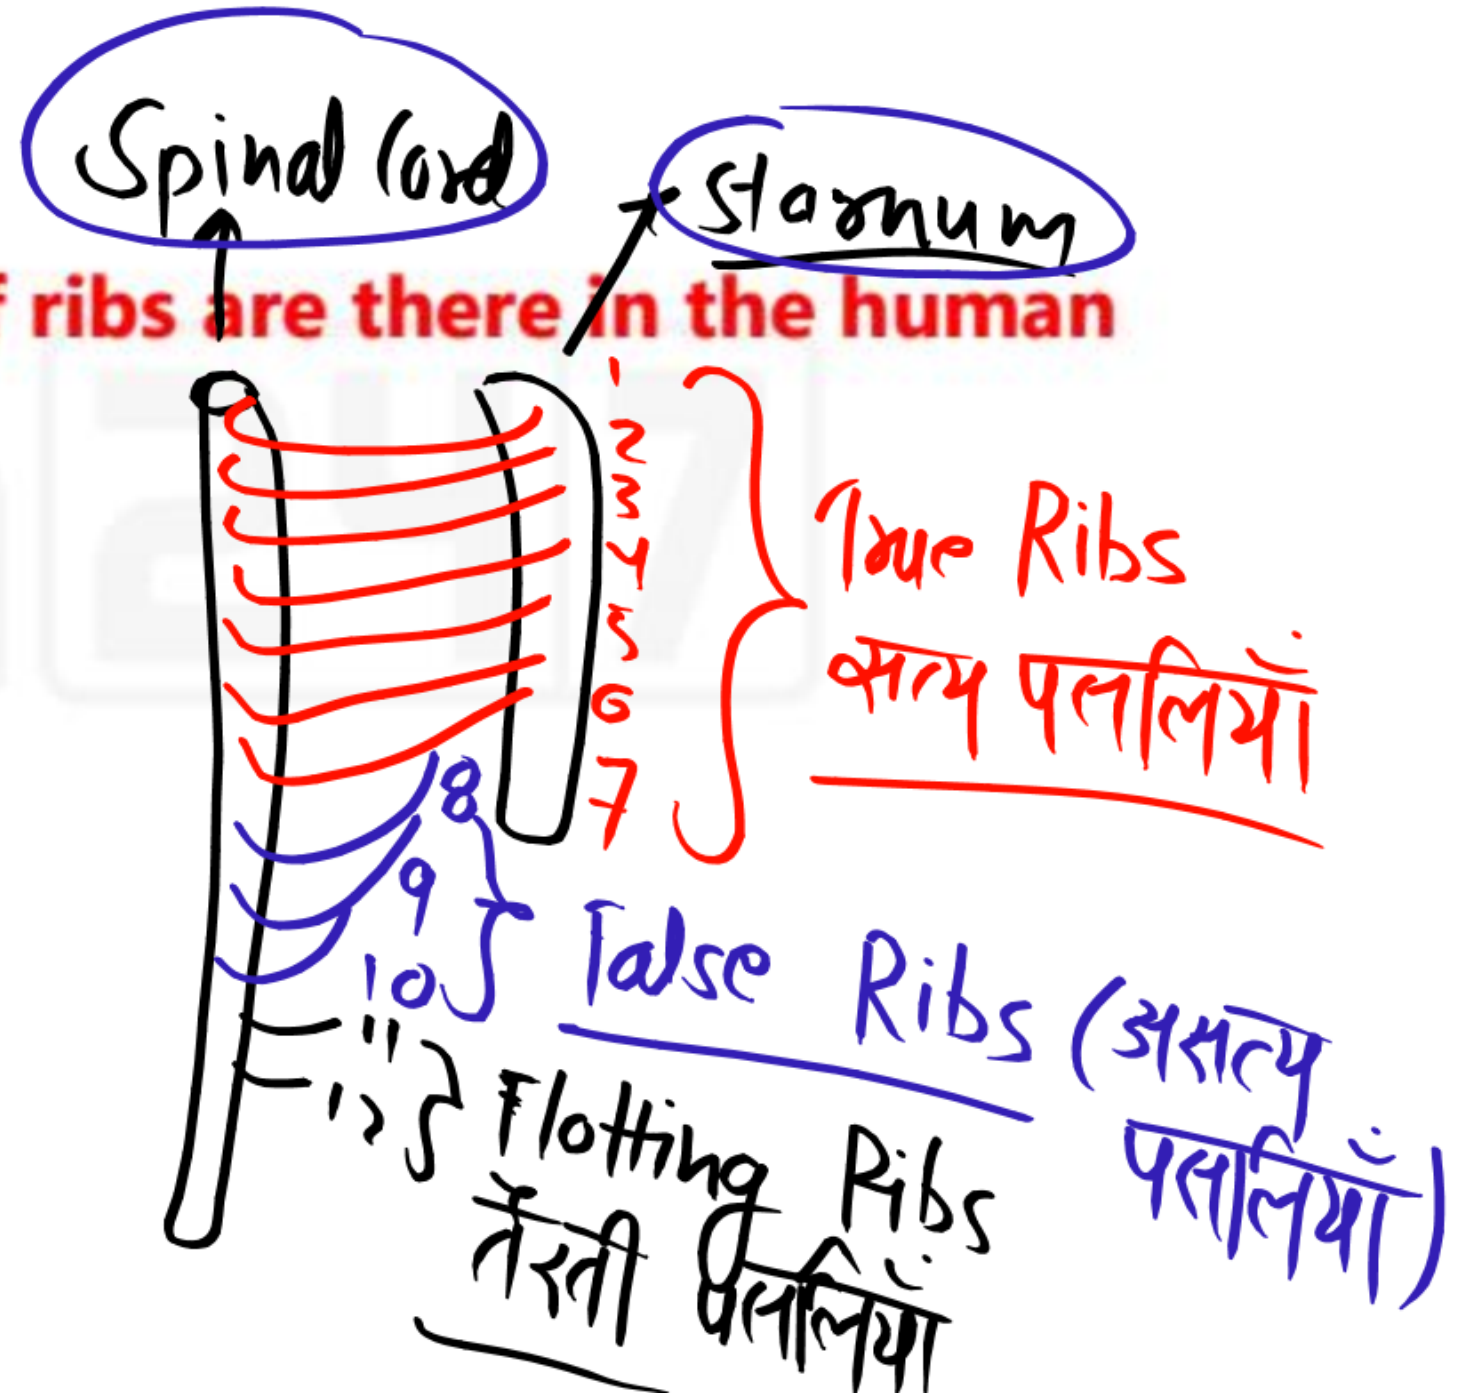 Spinal Cord
Starnum
f ribs are there in the human
1
2
3
4
5
6
7
True Ribs
सत्य पसलियाँ
8
9
10
False Ribs (असत्य
पसलियाँ)
11
12
Flotting Ribs
तैरती पसलियाँ